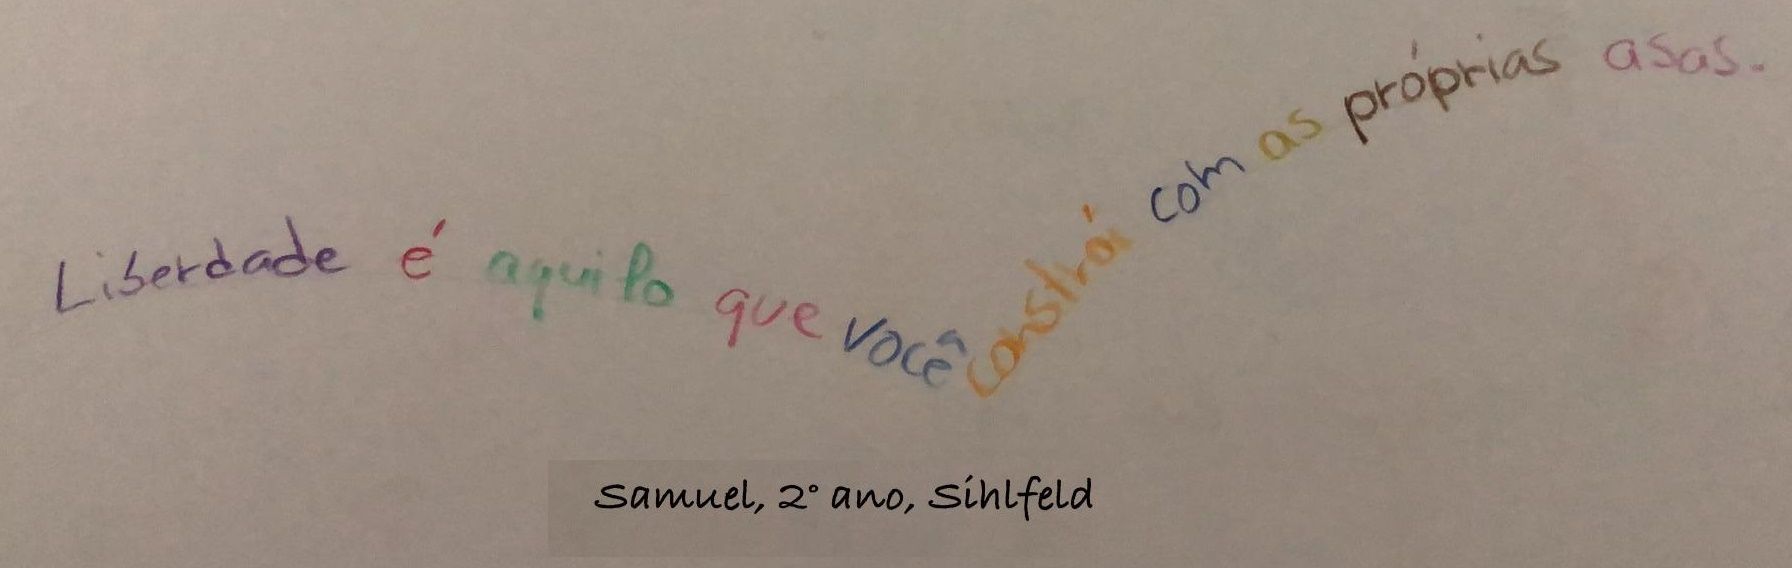 Liberdade é aquilo que você constrói com as próprias asas.
Samuel, 2° ano, Sihlfeld